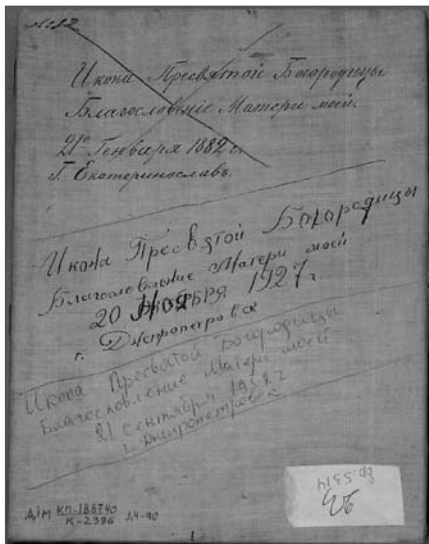 №32
Икона Пресвятой Богородицы
Благословеніе Матери моей.
21го Генваря 1882 г.
Г. Екатеринославъ.
Икона Пресвятой Богородицы
Благословение Матери моей
20 Ноября 1927 г
г. Днепропетровск
Икона Пресвятой Богородицы
Благословление Матери моей
21 сентября
г. Днепропетровск
ДІМ КП-188740
К-2396 ДЧ-90
Вр 5314